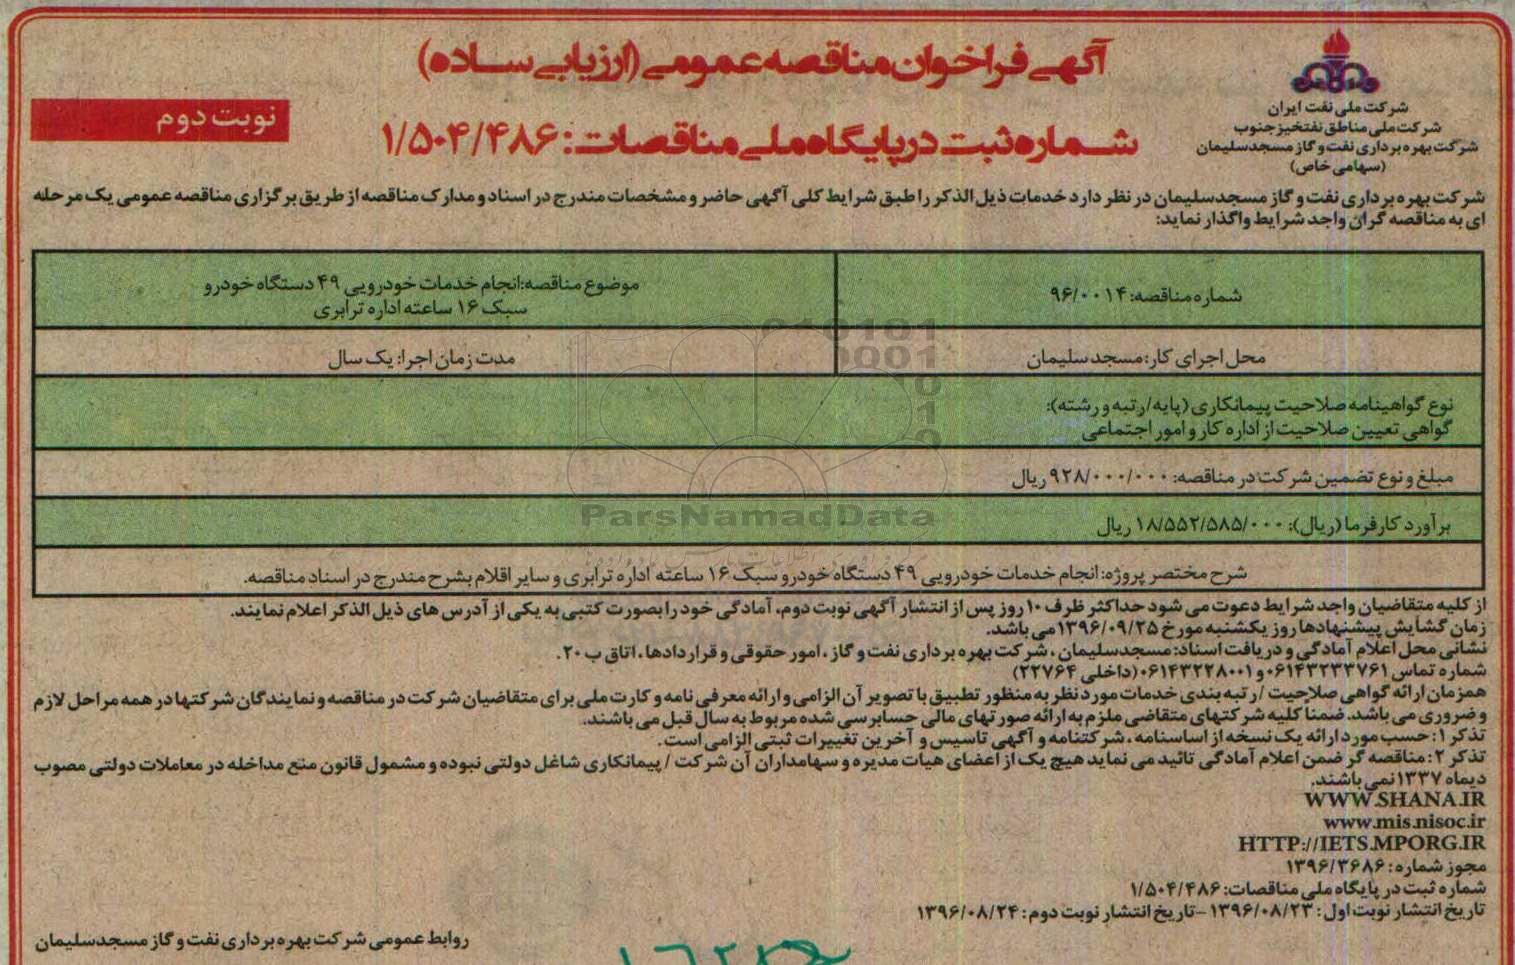 آگهی فراخوان مناقصه عمومی (ارزیابی ساده)
شرکت ملی نفت ایران
شرکت ملی مناطق نفتخیز جنوب
شرکت بهره برداری نفت و گاز مسجدسلیمان
(سهامی خاص)
نوبت دوم
شماره ثبت در پایگاه ملی مناقصات: ۱/۵۰۴/۴۸۶
شرکت بهره برداری نفت و گاز مسجدسلیمان در نظر دارد خدمات ذیل الذکر را طبق شرایط کلی آگهی حاضر و مشخصات مندرج در اسناد و مدارک مناقصه از طریق برگزاری مناقصه عمومی یک مرحله
ای به مناقصه گران واجد شرایط واگذار نماید:
شماره مناقصه: ۹۶/۰۰۱۴
موضوع مناقصه: انجام خدمات خودرویی ۴۹ دستگاه خودرو
سبک ۱۶ ساعته اداره ترابری
محل اجرای کار: مسجد سلیمان
مدت زمان اجرا: یک سال
نوع گواهینامه صلاحیت پیمانکاری (پایه/رتبه و رشته):
گواهی تعیین صلاحیت از اداره کار و امور اجتماعی
مبلغ و نوع تضمین شرکت در مناقصه: ۹۲۸/۰۰۰/۰۰۰ ریال
برآورد کارفرما (ریال): ۱۸/۵۵۲/۵۸۵/۰۰۰ ریال
شرح مختصر پروژه: انجام خدمات خودرویی ۴۹ دستگاه خودرو سبک ۱۶ ساعته اداره ترابری و سایر اقلام بشرح مندرج در اسناد مناقصه.
ParsNamadData
از کلیه متقاضیان واجد شرایط دعوت می شود حداکثر ظرف ۱۰ روز پس از انتشار آگهی نوبت دوم، آمادگی خود را بصورت کتبی به یکی از آدرس های ذیل الذکر اعلام نمایند.
زمان گشایش پیشنهادها روز یکشنبه مورخ ۱۳۹۶/۰۹/۲۵ می باشد.
نشانی محل اعلام آمادگی و دریافت اسناد: مسجدسلیمان، شرکت بهره برداری نفت و گاز، امور حقوقی و قراردادها، اتاق ب ۲۰.
شماره تماس ۰۶۱۴۳۲۳۳۷۶۱ و ۰۶۱۴۳۲۲۸۰۰۱ (داخلی ۲۲۷۶۴)
همزمان ارائه گواهی صلاحیت / رتبه بندی خدمات مورد نظر به منظور تطبیق با تصویر آن الزامی و ارائه معرفی نامه و کارت ملی برای متقاضیان شرکت در مناقصه و نمایندگان شرکتها در همه مراحل لازم
و ضروری می باشد. ضمنا کلیه شرکتهای متقاضی ملزم به ارائه صورتهای مالی حسابرسی شده مربوط به سال قبل می باشند.
تذکر ۱: حسب مورد ارائه یک نسخه از اساسنامه، شرکتنامه و آگهی تاسیس و آخرین تغییرات ثبتی الزامی است.
تذکر ۲: مناقصه گر ضمن اعلام آمادگی تائید می نماید هیچ یک از اعضای هیات مدیره و سهامداران آن شرکت / پیمانکاری شاغل دولتی نبوده و مشمول قانون منع مداخله در معاملات دولتی مصوب
دیماه ۱۳۳۷ نمی باشند.
WWW.SHANA.IR
www.mis.nisoc.ir
HTTP://IETS.MPORG.IR
مجوز شماره: ۱۳۹۶/۳۶۸۶
شماره ثبت در پایگاه ملی مناقصات: ۱/۵۰۴/۴۸۶
تاریخ انتشار نوبت اول: ۱۳۹۶/۰۸/۲۳ - تاریخ انتشار نوبت دوم: ۱۳۹۶/۰۸/۲۴
روابط عمومی شرکت بهره برداری نفت و گاز مسجدسلیمان